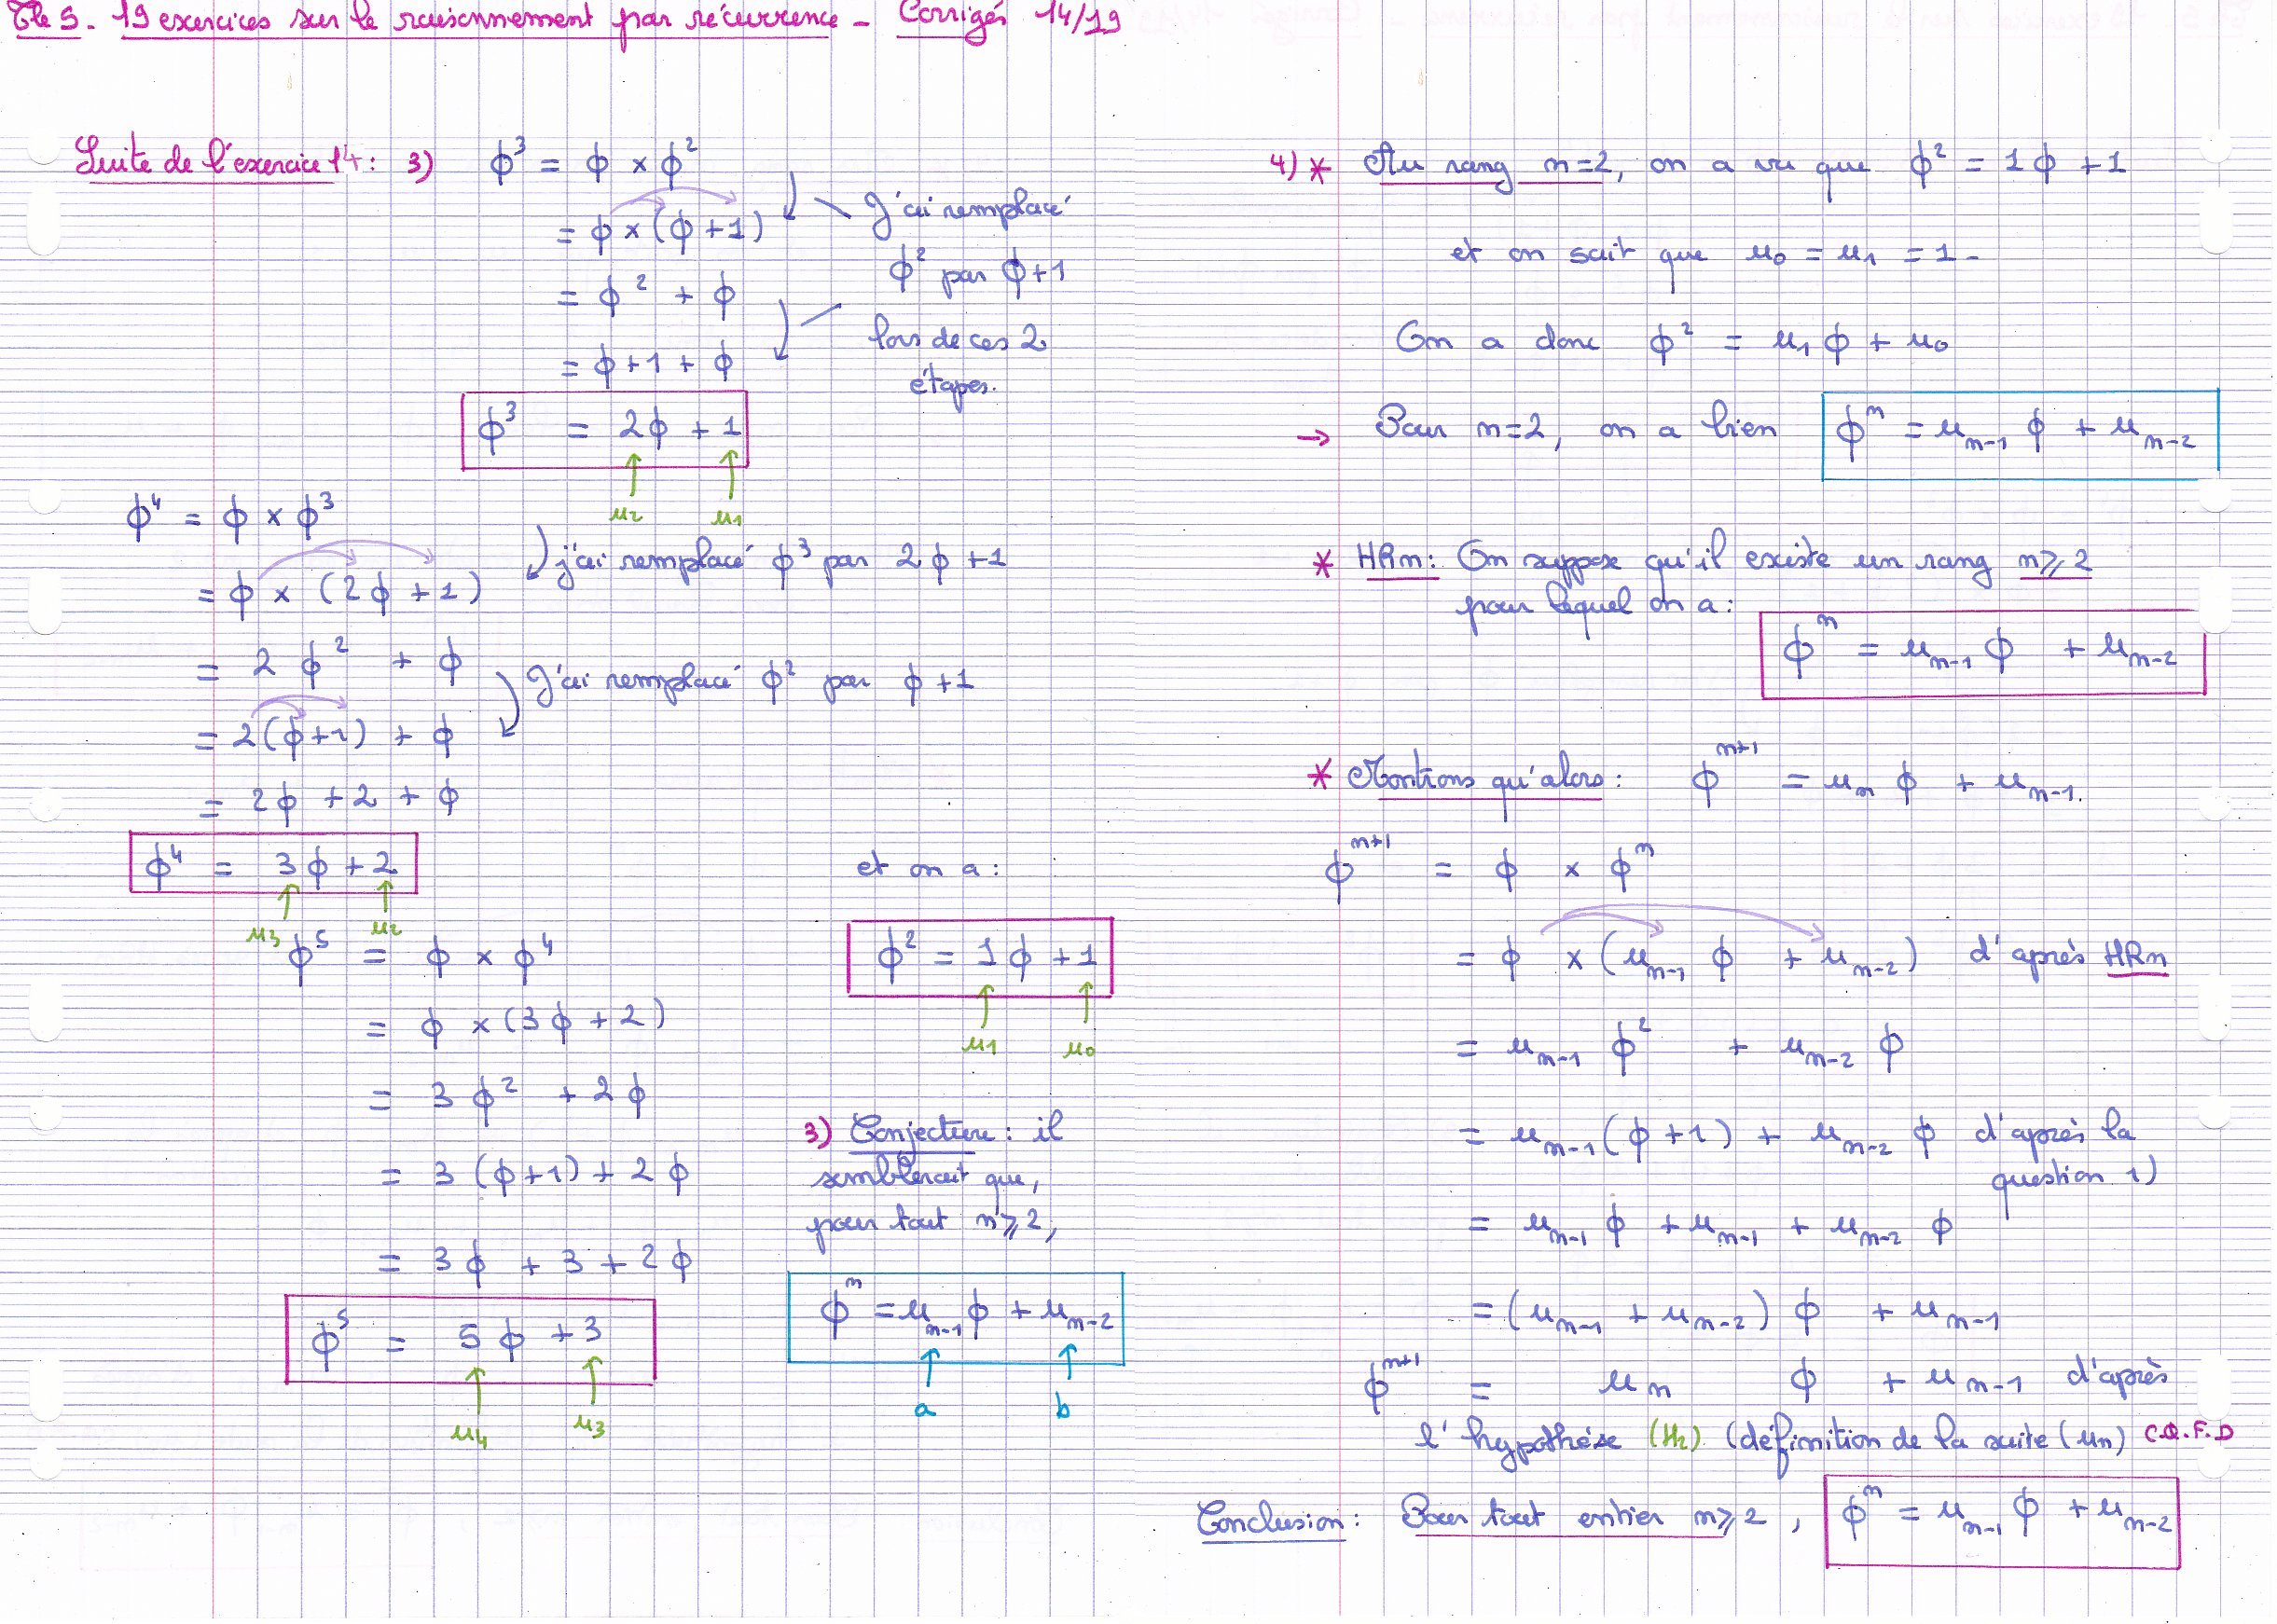 Tle S. 19 exercices sur le raisonnement par récurrence - Corrigés 14/19
Suite de l'exercice 14 : 3) ϕ³ = ϕ × ϕ²
= ϕ × (ϕ + 1)
= ϕ² + ϕ
= ϕ + 1 + ϕ
J'ai remplacé
ϕ² par ϕ+1
lors de ces 2
étapes.
ϕ³ = 2ϕ + 1
u₂ u₁
ϕ⁴ = ϕ × ϕ³
= ϕ × (2ϕ + 1)
j'ai remplacé ϕ³ par 2ϕ+1
= 2ϕ² + ϕ
J'ai remplacé ϕ² par ϕ+1
= 2(ϕ+1) + ϕ
= 2ϕ + 2 + ϕ
ϕ⁴ = 3ϕ + 2
u₃ u₂
ϕ⁵ = ϕ × ϕ⁴
= ϕ × (3ϕ + 2)
= 3ϕ² + 2ϕ
= 3(ϕ+1) + 2ϕ
= 3ϕ + 3 + 2ϕ
ϕ⁵ = 5ϕ + 3
u₄ u₃
et on a :
ϕ² = 1ϕ + 1
u₁ u₀
3) Conjecture : il
semblerait que,
pour tout n ⩾ 2,
ϕⁿ = uₙ₋₁ ϕ + uₙ₋₂
a b
4) * Au rang n=2, on a vu que ϕ² = 1ϕ + 1
et on sait que u₀ = u₁ = 1.
On a donc ϕ² = u₁ϕ + u₀
→ Pour n=2, on a bien ϕⁿ = uₙ₋₁ ϕ + uₙ₋₂
* HRn : On suppose qu'il existe un rang n ⩾ 2
pour lequel on a :
ϕⁿ = uₙ₋₁ ϕ + uₙ₋₂
* Montrons qu'alors : ϕⁿ⁺¹ = uₙ ϕ + uₙ₋₁.
ϕⁿ⁺¹ = ϕ × ϕⁿ
= ϕ × (uₙ₋₁ ϕ + uₙ₋₂) d'après HRn
= uₙ₋₁ ϕ² + uₙ₋₂ ϕ
= uₙ₋₁(ϕ+1) + uₙ₋₂ ϕ d'après la
question 1)
= uₙ₋₁ ϕ + uₙ₋₁ + uₙ₋₂ ϕ
= (uₙ₋₁ + uₙ₋₂) ϕ + uₙ₋₁
ϕⁿ⁺¹ = uₙ ϕ + uₙ₋₁ d'après
l'hypothèse (H₂) (définition de la suite (uₙ) C.Q.F.D
Conclusion : Pour tout entier n ⩾ 2, ϕⁿ = uₙ₋₁ ϕ + uₙ₋₂